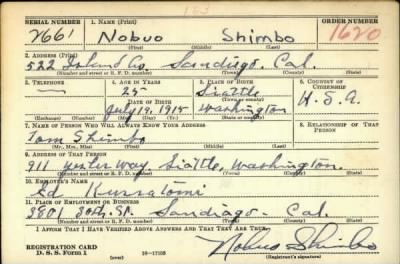 SERIAL NUMBER 1. NAME (Print) ORDER NUMBER
2661 Nobuo Shimbo 1620
(First) (Middle) (Last)
2. ADDRESS (Print)
522 Island Av. Sandiego. Cal.
(Number and street or R. F. D. number) (Town) (County) (State)
3. TELEPHONE 4. AGE IN YEARS 5. PLACE OF BIRTH 6. COUNTRY OF CITIZENSHIP
25 Siattle
DATE OF BIRTH (Town or county)
July 19, 1915 Washington U.S.A.
(Mo.) (Day) (Yr.) (State or country)
7. NAME OF PERSON WHO WILL ALWAYS KNOW YOUR ADDRESS 8. RELATIONSHIP OF THAT PERSON
Tom Shimbo
(Mr., Mrs., Miss) (First) (Middle) (Last)
9. ADDRESS OF THAT PERSON
911 Yesler Way. Siattle, Washington.
(Number and street or R. F. D. number) (Town) (County) (State)
10. EMPLOYER'S NAME
Ed.
11. PLACE OF EMPLOYMENT OR BUSINESS
3801 30th. St. Sandiago. Cal.
(Number and street or R. F. D. number) (Town) (County) (State)
I AFFIRM THAT I HAVE VERIFIED ABOVE ANSWERS AND THAT THEY ARE TRUE.
REGISTRATION CARD
D. S. S. Form 1 (over) 16—17105 Nobuo Shimbo
(Registrant's signature)